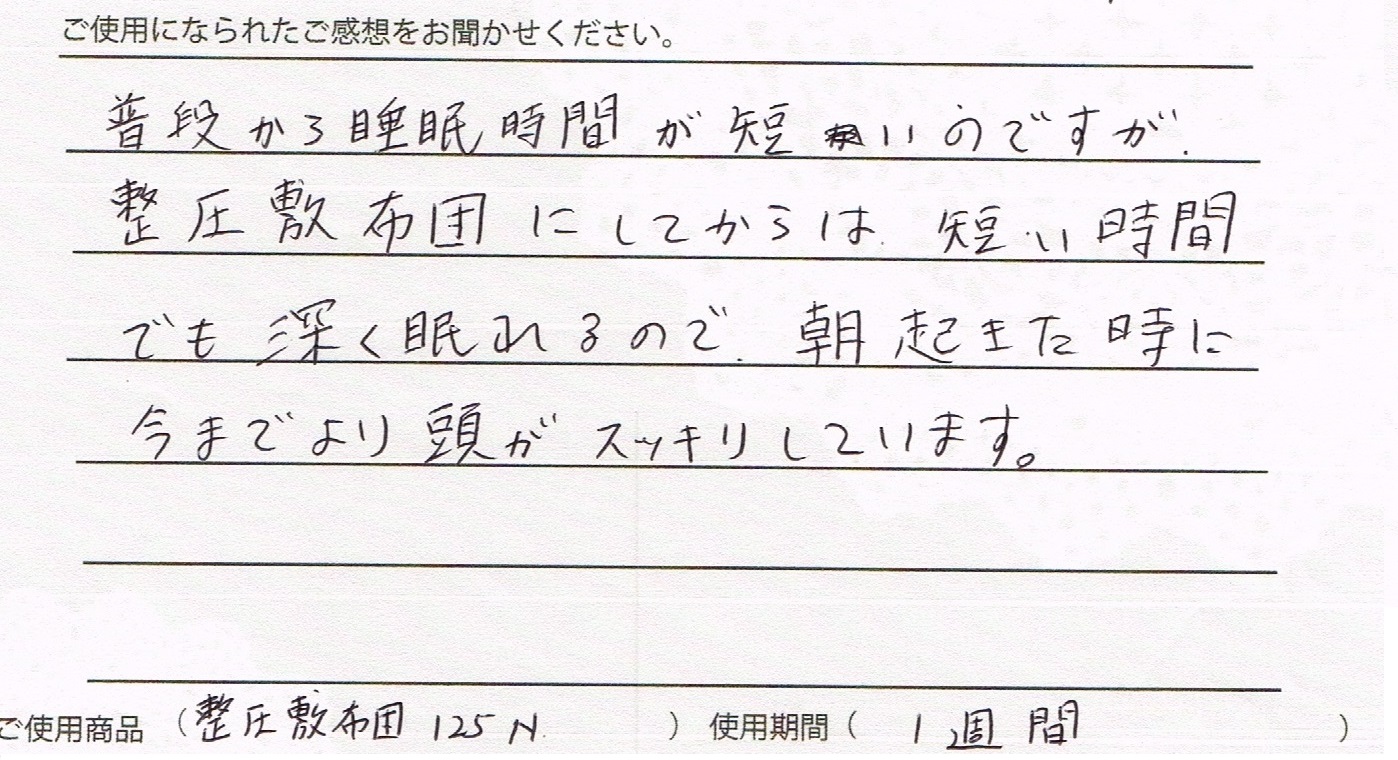 ご使用になられたご感想をお聞かせください。
普段から睡眠時間が短いのですが、
整圧敷布団にしてからは、短い時間
でも深く眠れるので、朝起きた時に
今までより頭がスッキリしています。
ご使用商品（整圧敷布団 125N）使用期間（1週間）